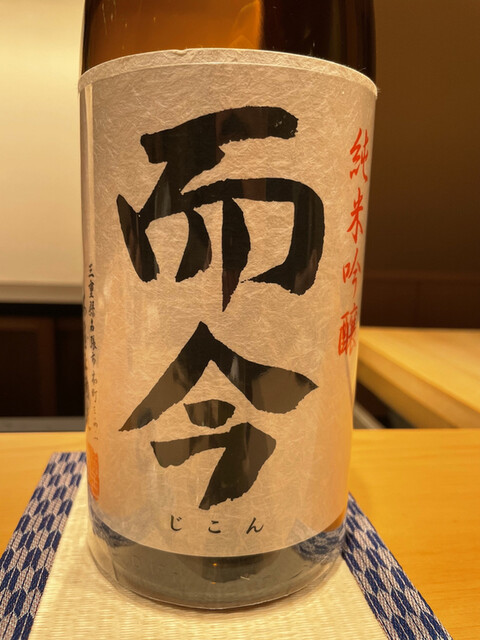 純米吟醸
而今
じこん
三重県名張市本町